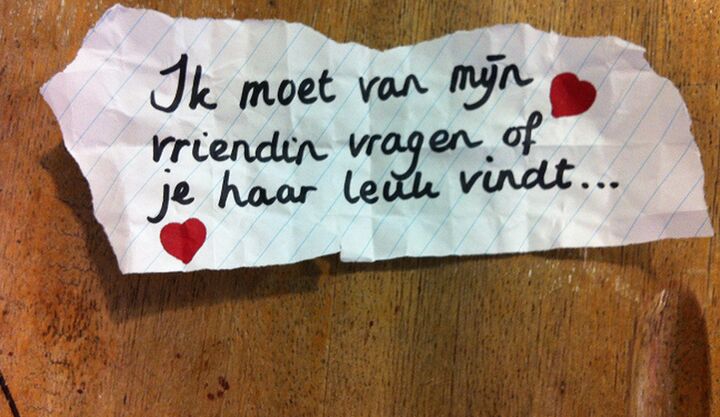 Ik moet van mijn
vriendin vragen of
je haar leuk vindt...